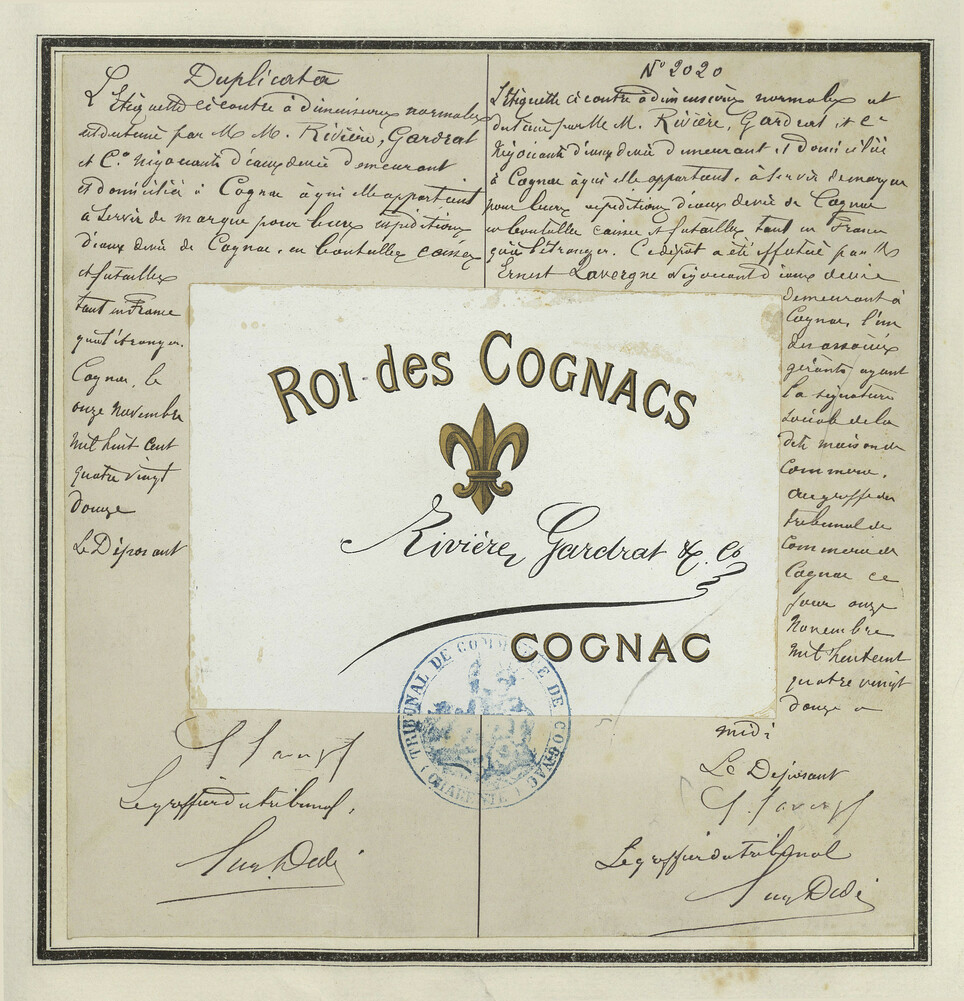 Duplicata
L'Etiquette ci contre à dimensions normales
est destinée par M M. Rivière, Gardrat
et Cº. Négociants d'eaux de vie demeurant
et domiciliés à Cognac à qui elle appartient
à servir de marque pour leurs expéditions
d'eaux de vie de Cognac, en bouteilles caisses
et futailles
tant en France
qu'à l'étranger.
Cognac, le
onze Novembre
mil huit cent
quatre vingt
douze
Le Déposant
Le greffier du tribunal,
Nº 2020
L'Etiquette ci contre à dimensions normales est
destinée par M M. Rivière, Gardrat, et Cº
Négociants d'eaux de vie demeurant et domiciliés
à Cognac à qui elle appartient, à servir de marque
pour leurs expéditions d'eaux de vie de Cognac
en bouteilles caisses et futailles tant en France
qu'à l'étranger. Ce dépôt a été effectué par Mr
Ernest Lavergne Négociant d'eaux de vie
demeurant à
Cognac, l'un
des associés
gérants ayant
la signature
sociale de la
dite maison de
Commerce.
Au greffe du
tribunal de
Commerce de
Cognac ce
jour onze
Novembre
mil huit cent
quatre vingt
douze à
midi
Le Déposant
Le greffier du tribunal
ROI des COGNACS
Rivière, Gardrat & Co
COGNAC
TRIBUNAL DE COMMERCE DE COGNAC
(CHARENTE)